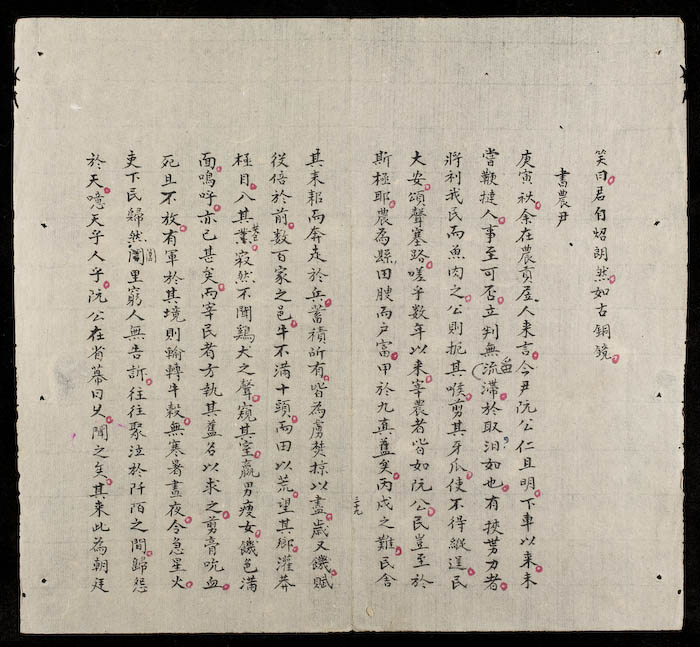 笑曰君自炤朗然如古銅鏡
書農尹
庚寅秋余在農貢屋人来言今尹阮公仁且明下車以来未
嘗鞭撻人事至可否立判無流滯於取泊如也有挾势力者
畱
將利我民而魚肉之公則扼其喉剪其牙瓜使不得縱逞民
大安頌聲塞路嗟乎数年以来宰農者皆如阮公民豈至於
斯極耶農為縣田腴而戸富甲於九真蓋矣丙戍之難民舍
三九
其耒耜而奔走於兵蓄積所有皆為虜焚掠以盡歲又饑賦
役倍於前数百家之邑牛不滿十頭而田以荒望其鄉灌莽
極目入其業寂然不聞鷄犬之聲窺其室羸男瘦女饑色滿
面嗚呼亦已甚矣而宰民者方執其舊名以求之剪膏吮血
死且不放有軍於其境則輸轉牛穀無寒暑晝夜令急星火
吏下民歸然閭里窮人無告訴往往聚泣於阡陌之間歸怨
於天噫天乎人乎阮公在省幕日久聞之矣其来此為朝廷